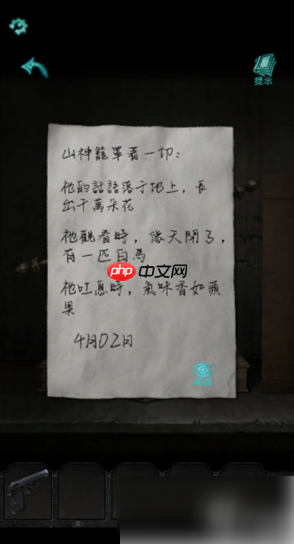 提示
山神籠罩着一切:
祂的話語落于地上，長
出千萬朵花
祂觀看時，像天開了，
有一匹白馬
祂吐息時，氣味香如蘋
果
4月02日
php 中文网